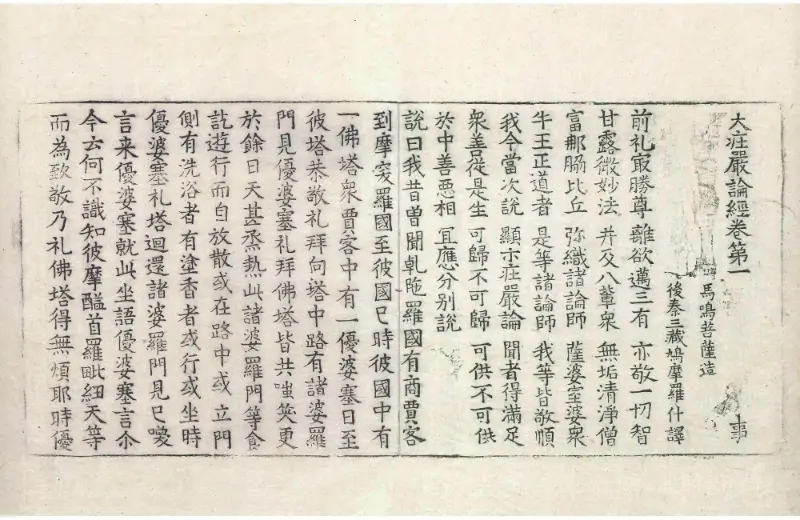 大疰嚴論經卷第一 事
馬鳴菩薩造
後秦三藏鳩摩羅什譯
前礼㝡勝尊 離欲邁三有 亦敬一切智
甘露微妙法 并及八輩衆 無垢清淨僧
富那脇比丘 弥織諸論師 薩婆室婆衆
牛王正道者 是等諸論師 我等皆敬順
我今當次說 顯示疰嚴論 聞者得滿足
衆善從是生 可歸不可歸 可供不可供
於中善惡相 冝應分別說
說曰我昔曽聞乹陁羅國有商賈客
到摩突羅國至彼國已時彼國中有
一佛塔衆賈客中有一優婆塞日至
彼塔恭敬礼拜向塔中路有諸婆羅
門見優婆塞礼拜佛塔皆共嗤笑更
於餘日天甚烝熱此諸婆羅門等食
訖遊行而自放散或在路中或立門
側有洗浴者有塗香者或行或坐時
優婆塞礼塔迴還諸婆羅門見已喚
言来優婆塞就此坐語優婆塞言尒
今云何不識知彼摩醯首羅毗紐天等
而為致敬乃礼佛塔得無煩耶時優